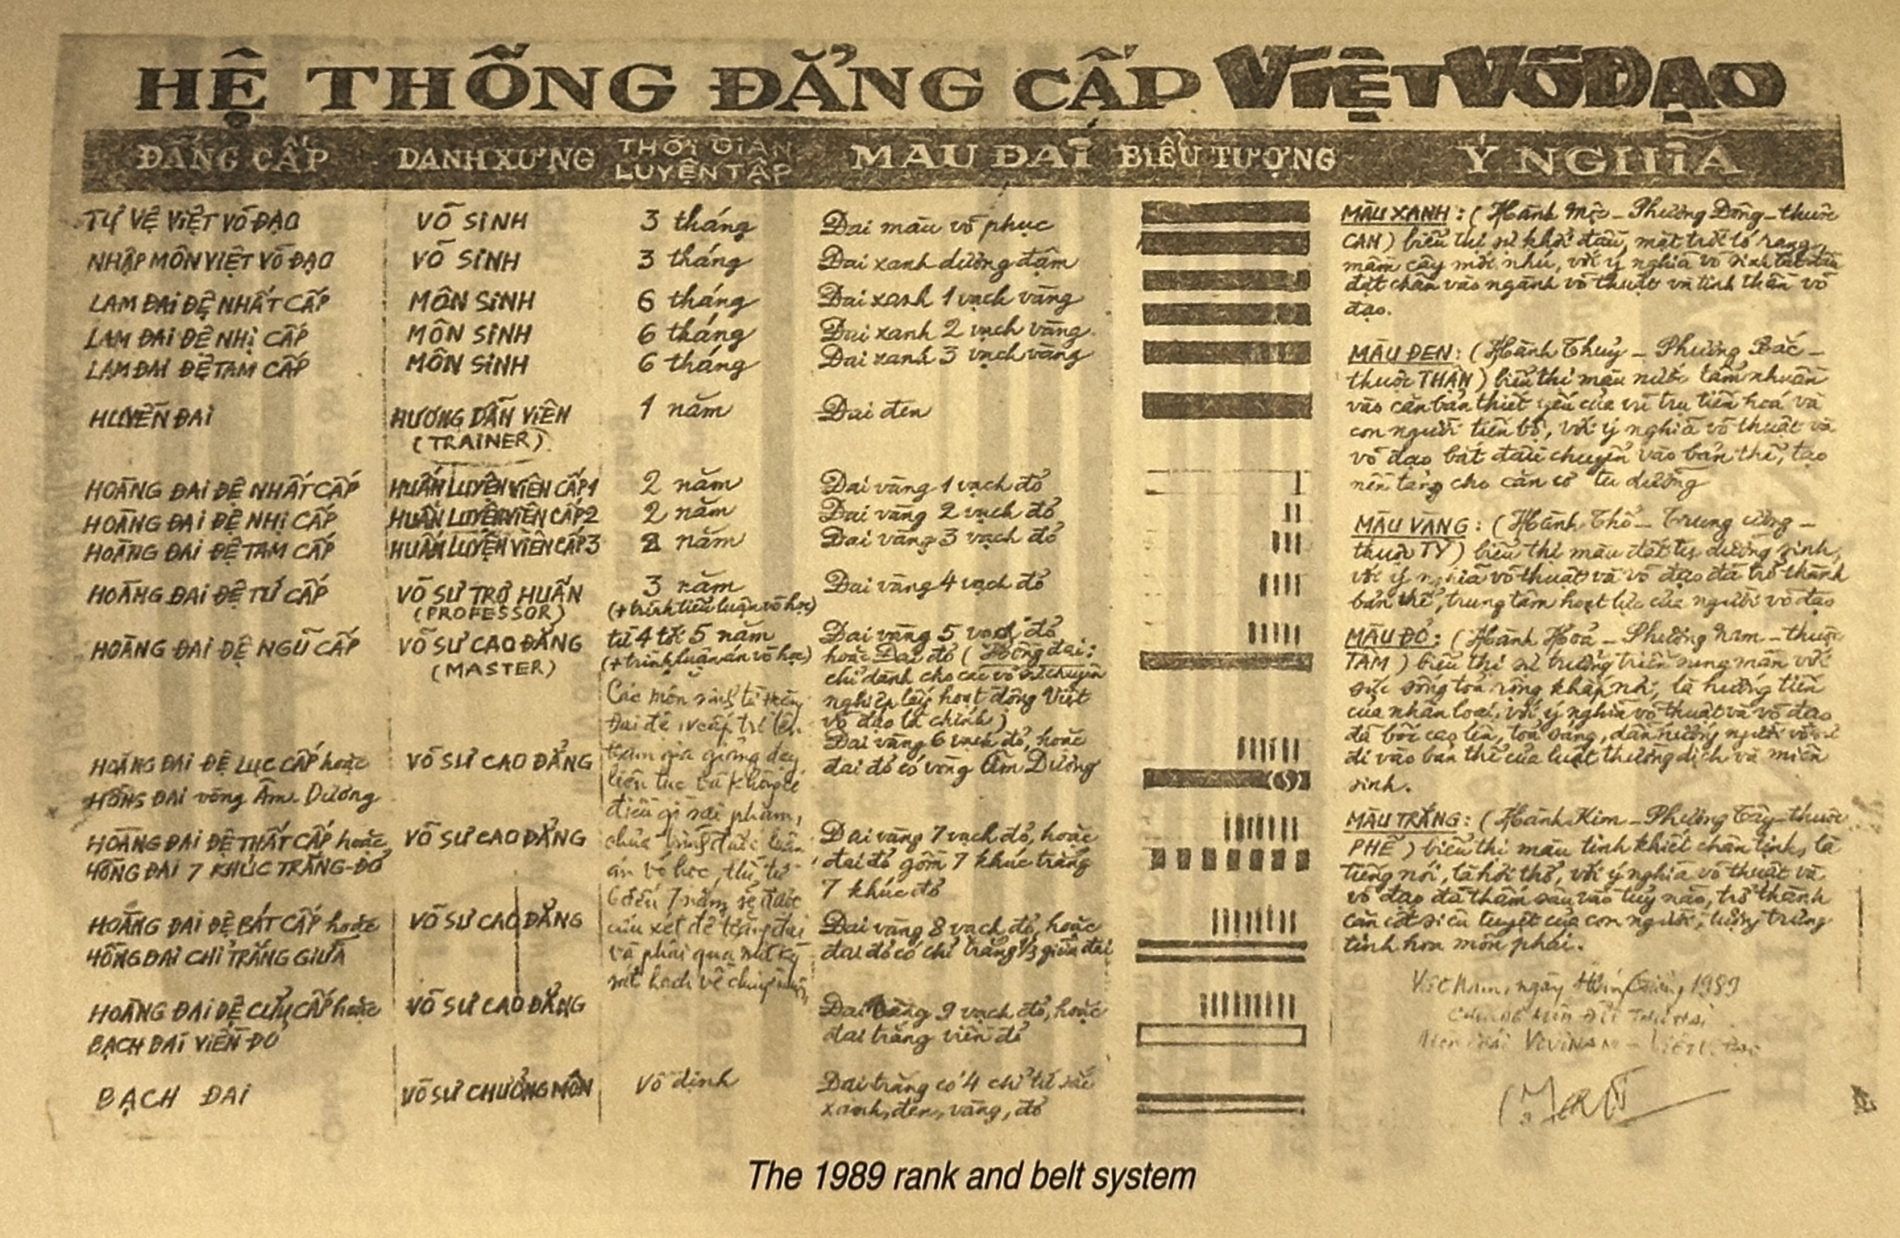 HỆ THỐNG ĐẲNG CẤP VIỆT VÕ ĐẠO
ĐẲNG CẤP DANH XƯNG THỜI GIAN LUYỆN TẬP MÀU ĐAI BIỂU TƯỢNG Ý NGHĨA
TỰ VỆ VIỆT VÕ ĐẠO VÕ SINH 3 tháng Đai màu võ phục
NHẬP MÔN VIỆT VÕ ĐẠO VÕ SINH 3 tháng Đai xanh dương đậm
LAM ĐAI ĐỆ NHẤT CẤP MÔN SINH 6 tháng Đai xanh 1 vạch vàng
LAM ĐAI ĐỆ NHỊ CẤP MÔN SINH 6 tháng Đai xanh 2 vạch vàng
LAM ĐAI ĐỆ TAM CẤP MÔN SINH 6 tháng Đai xanh 3 vạch vàng
HUYỀN ĐAI HƯỚNG DẪN VIÊN 1 năm Đai đen
(TRAINER)
HOÀNG ĐAI ĐỆ NHẤT CẤP HUẤN LUYỆN VIÊN CẤP 1 2 năm Đai vàng 1 vạch đỏ
HOÀNG ĐAI ĐỆ NHỊ CẤP HUẤN LUYỆN VIÊN CẤP 2 2 năm Đai vàng 2 vạch đỏ
HOÀNG ĐAI ĐỆ TAM CẤP HUẤN LUYỆN VIÊN CẤP 3 2 năm Đai vàng 3 vạch đỏ
HOÀNG ĐAI ĐỆ TỨ CẤP VÕ SƯ TRỢ HUẤN 3 năm Đai vàng 4 vạch đỏ
(PROFESSOR) (+ trình tiểu luận võ học)
HOÀNG ĐAI ĐỆ NGŨ CẤP VÕ SƯ CAO ĐẲNG từ 4 tới 5 năm Đai vàng 5 vạch đỏ
(MASTER) (+ trình luận án võ học) hoặc Đai đỏ (Hồng đai:
chỉ dành cho các võ sư chuyên
nghiệp lấy hoạt động Việt
võ đạo là chính)
HOÀNG ĐAI ĐỆ LỤC CẤP hoặc VÕ SƯ CAO ĐẲNG Đai vàng 6 vạch đỏ, hoặc
HỒNG ĐAI vòng Âm Dương đai đỏ có vòng Âm Dương
HOÀNG ĐAI ĐỆ THẤT CẤP hoặc VÕ SƯ CAO ĐẲNG Đai vàng 7 vạch đỏ, hoặc
HỒNG ĐAI 7 KHÚC TRẮNG-ĐỎ đai đỏ gồm 7 khúc trắng
7 khúc đỏ
HOÀNG ĐAI ĐỆ BÁT CẤP hoặc VÕ SƯ CAO ĐẲNG Đai vàng 8 vạch đỏ, hoặc
HỒNG ĐAI CHỈ TRẮNG GIỮA đai đỏ có chỉ trắng 1/3 giữa đai
HOÀNG ĐAI ĐỆ CỬU CẤP hoặc VÕ SƯ CAO ĐẲNG Đai vàng 9 vạch đỏ, hoặc
BẠCH ĐAI VIỀN ĐỎ đai trắng viền đỏ
BẠCH ĐAI VÕ SƯ CHƯỞNG MÔN Vô định Đai trắng có 4 chỉ tứ sắc
xanh, đen, vàng, đỏ
MÀU XANH: (Hành Mộc – Phương Đông – thuộc
CAN) biểu thị sự khởi đầu, mặt trời ló rạng,
mầm cây mới nhú, với ý nghĩa võ sinh bắt đầu
đặt chân vào ngành võ thuật và tinh thần võ
đạo.
MÀU ĐEN: (Hành Thuỷ – Phương Bắc –
thuộc THẬN) biểu thị màu nước tẩm nhuần
vào căn bản thiết yếu của vũ trụ tiến hoá và
con người tiến bộ, với ý nghĩa võ thuật và
võ đạo bắt đầu chuyển vào bản thể, tạo
nền tảng cho căn cơ tu dưỡng
MÀU VÀNG: (Hành Thổ – Trung ương –
thuộc TỲ) biểu thị màu đất tự dưỡng sinh,
với ý nghĩa võ thuật và võ đạo đã trở thành
bản thể, trung tâm hoạt lực của người võ đạo
MÀU ĐỎ: (Hành Hoả – Phương Nam – thuộc
TÂM) biểu thị sự trưởng triển sung mãn với
sức sống toả rộng khắp nơi, là hướng tiến
của nhân loại, với ý nghĩa võ thuật và võ đạo
đã bốc cao lên, toả sáng, dẫn hướng người võ
đi vào bản thể của luật thường dịch và miên
sinh.
MÀU TRẮNG: (Hành Kim – Phương Tây – thuộc
PHẾ) biểu thị màu tinh khiết chân tịnh, là
tiếng nói, là hơi thở, với ý nghĩa võ thuật và
võ đạo đã thấm sâu vào tuỷ não, trở thành
cân cốt siêu tuyệt của con người, tượng trưng
tinh hoa môn phái.
Việt Nam, ngày 1989
The 1989 rank and belt system